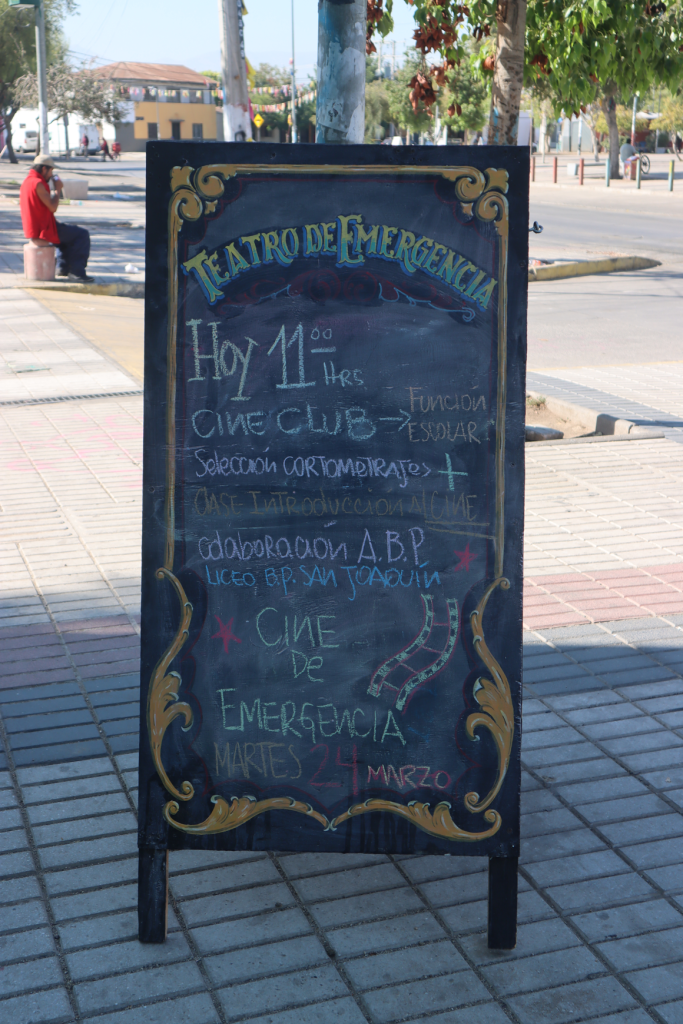 TEATRO DE EMERGENCIA
Hoy 11:00 HRS
CINE CLUB → FUNCIÓN ESCOLAR
Selección CORTOMETRAJES +
CLASE INTRODUCCIÓN Al CINE
COlaboración A.B.P
LICEO B.P. SAN JOAQUÍN
CINE
De
EMERGENCIA
MARTES 24 MARZO